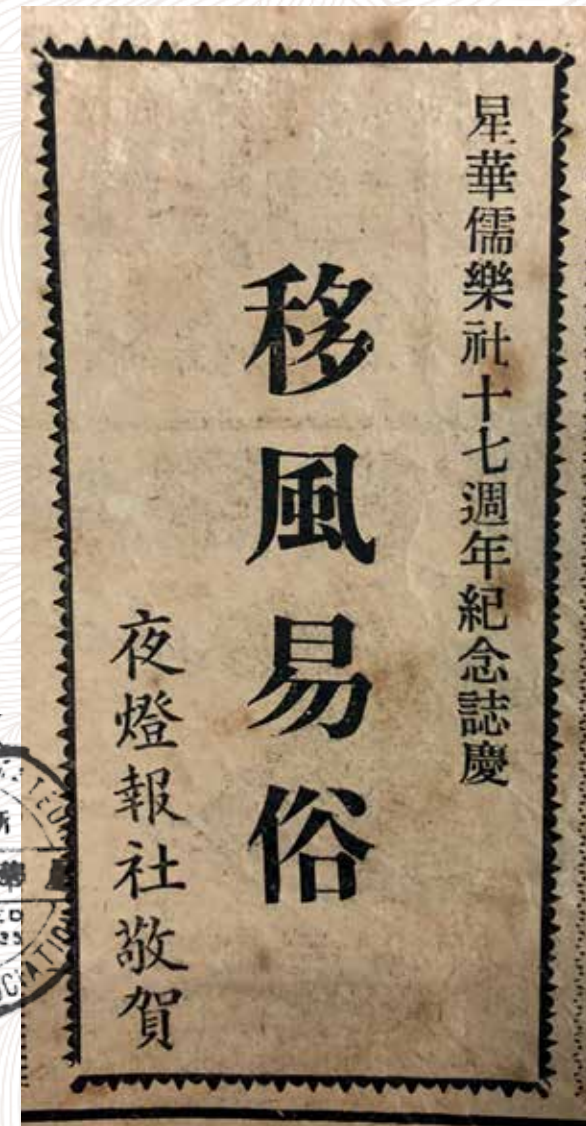 星華儒樂社十七週年紀念誌慶
移風易俗
夜燈報社敬賀